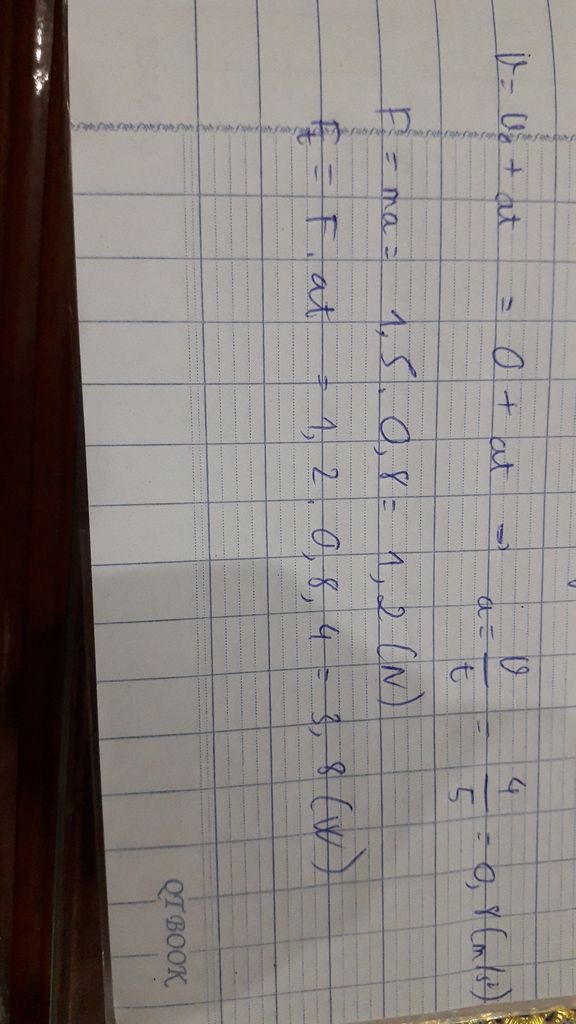 v = v₀ + at = 0 + at ⇒ a = v/t = 4/5 = 0,8 (m/s²)
F = ma = 1,5 . 0,8 = 1,2 (N)
F_t = F . at = 1,2 . 0,8, 4 = 3,8 (W)
QT BOOK